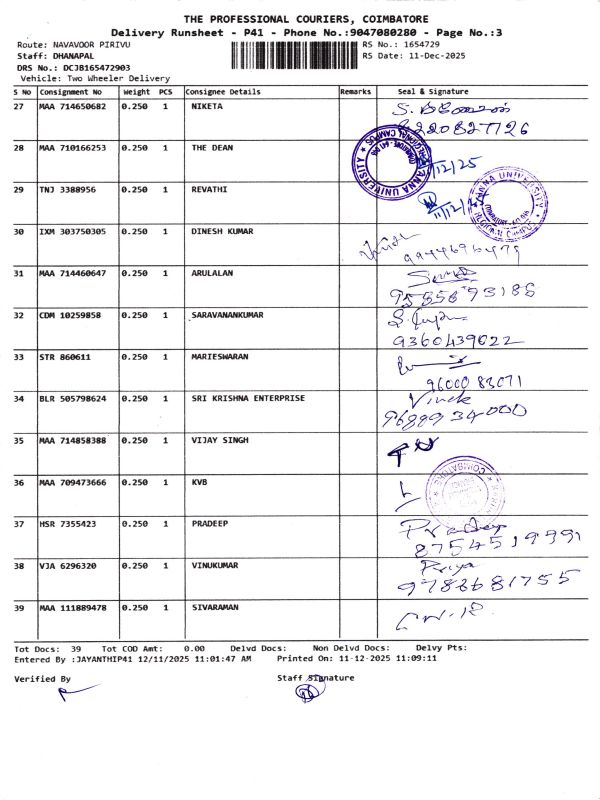 THE PROFESSIONAL COURIERS, COIMBATORE
Delivery Runsheet - P41 - Phone No.:9047080280 - Page No.:3
Route: NAVAVOOR PIRIVU
RS No.: 1654729
Staff: DHANAPAL
RS Date: 11-Dec-2025
DRS No.: DCJB165472903
Vehicle: Two Wheeler Delivery
S No Consignment No Weight PCS Consignee Details Remarks Seal & Signature
27 MAA 714650682 0.250 1 NIKETA
8220827726
28 MAA 710166253 0.250 1 THE DEAN
ANNA UNIVERSITY REGIONAL CAMPUS
29 TNJ 3388956 0.250 1 REVATHI
ANNA UNIVERSITY REGIONAL CAMPUS
30 IXM 303750305 0.250 1 DINESH KUMAR
31 MAA 714460647 0.250 1 ARULALAN
32 CDM 10259858 0.250 1 SARAVANANKUMAR
9360439622
33 STR 860611 0.250 1 MARIESWARAN
96000 83071
34 BLR 505798624 0.250 1 SRI KRISHNA ENTERPRISE
9689934000
35 MAA 714858388 0.250 1 VIJAY SINGH
36 MAA 709473666 0.250 1 KVB
COIMBATORE
37 HSR 7355423 0.250 1 PRADEEP
Pradeep
8754519991
38 VJA 6296320 0.250 1 VINUKUMAR
Priya
9788681755
39 MAA 111889478 0.250 1 SIVARAMAN
Tot Docs: 39 Tot COD Amt: 0.00 Delvd Docs: Non Delvd Docs: Delvy Pts:
Entered By :JAYANTHIP41 12/11/2025 11:01:47 AM Printed On: 11-12-2025 11:09:11
Verified By
Staff Signature